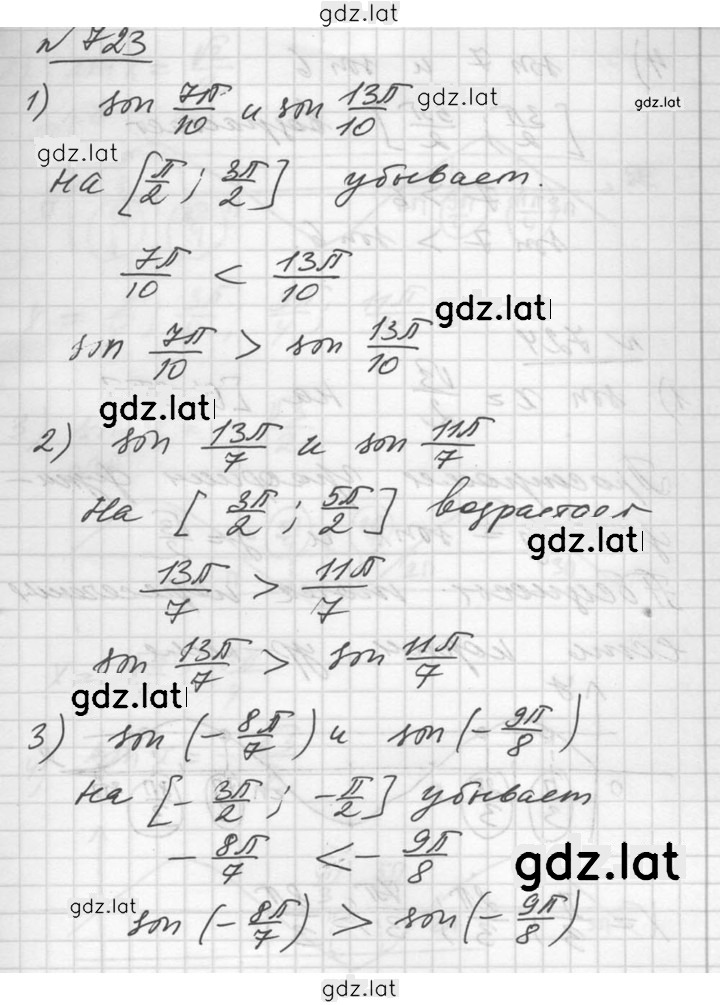 gdz.lat
№ 723
1) sin 7π/10 и sin 13π/10 gdz.lat gdz.lat
gdz.lat
на [π/2 ; 3π/2] убывает.
7π/10 < 13π/10
gdz.lat
sin 7π/10 > sin 13π/10
gdz.lat
2) sin 13π/7 и sin 11π/7
на [3π/2 ; 5π/2] возрастает
gdz.lat
13π/7 > 11π/7
sin 13π/7 > sin 11π/7
gdz.lat
3) sin (-8π/7) и sin (-9π/8)
на [-3π/2 ; -π/2] убывает
-8π/7 < -9π/8
gdz.lat
gdz.lat
sin (-8π/7) > sin (-9π/8)
gdz.lat